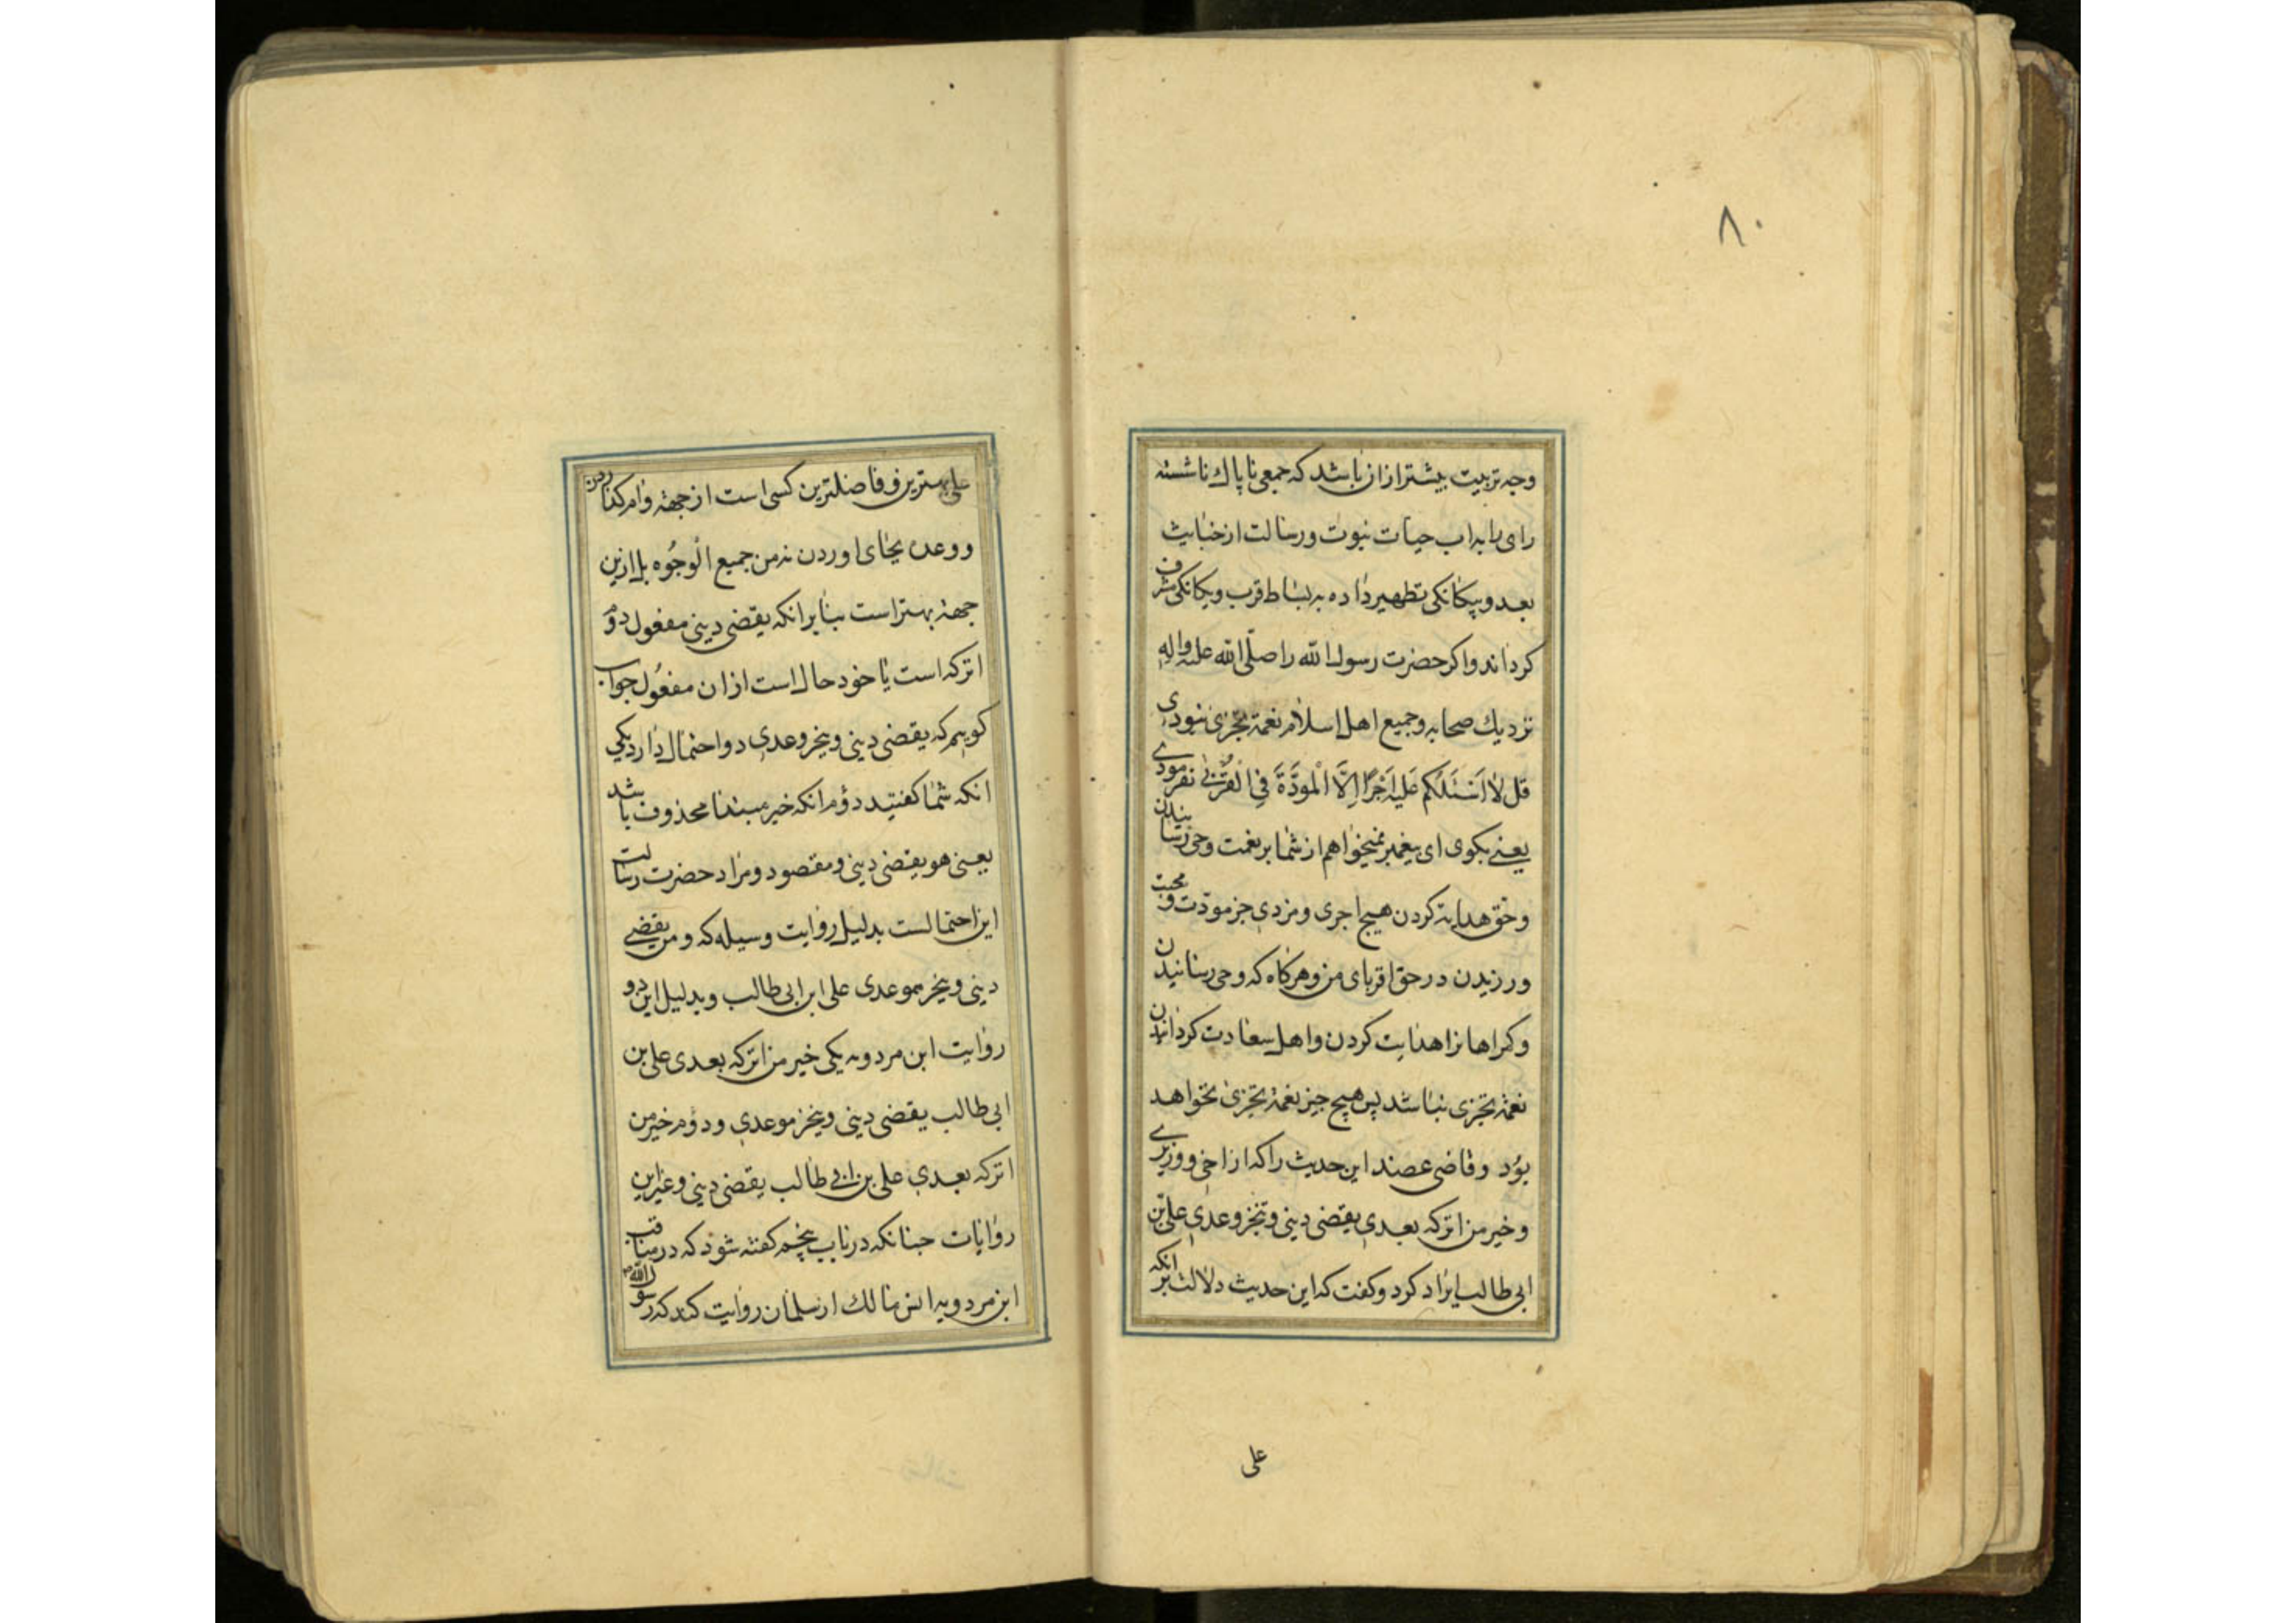 ۸۰
وجه تربیت بیشتر ازان باشد که جمعی ناپاك ناشسته
رای را به اب حیات نبوت و رسالت از خباثیث
بعد و بیکانکی تطهیر داده به بساط قرب و یکانکی مشرف
کرداند و اکر حضرت رسول الله را صلّی الله علیه واله
نزدیك صحابه و جمیع اهل اسلام نعمة تجزی نبودی
قل لا اَسْئَلُکُم عَلیه اَجْرًا اِلَّا الْموَدَّةَ فِی الْقُرْبٰی نفرمودی
یعنی بکوی ای پیغمبر نمیخواهم از شما بر نعمت وحی رسانیدن
و حق هدایة کردن هیچ اجری و مزدی جز مودّت و محبت
ورزیدن در حق اقربای من و هرکاه که وحی رسانیدن
و کمراهانرا هدایت کردن و اهل سعادت کردانیدن
نعمة تجزی نباشد پس هیچ چیز نعمة تجزی نخواهد
بوُد و قاضی عضد این حدیث را که از اخی و وزیری
و خیر من اترکه بعدی یقضی دینی و تنجز وعدی علی بن
ابی طالب ایراد کرد و کفت که این حدیث دلالت بر انکه
علی
علی بهترین و فاضلترین کسی است از جهة وام کذاردن
و وعده بجای اوردن نه من جمیع الْوجُوه بل ازین
جهة بهتر است بنابر انکه یقضی دینی مفعول دوّم
اترکه است یا خود حال است ازان مفعُول جواب
کوییم که یقضی دینی و ینجز وعدی دو احتمال دارد یکی
انکه شما کفتید دوّم انکه خبر مبتدا محذوف باشد
یعنی هو یقضی دینی و مقصود و مراد حضرت رسالت
این احتمالست بدلیل روایت وسیله که و من یقضی
دینی و ینجز موعدی علی ابن ابی طالب و بدلیل این دو
روایت ابن مردویه یکی خیر من اترکه بعدی علی بن
ابی طالب یقضی دینی و ینجز موعدی و دوّم خیر من
اترکه بعدی علی بن ابی طالب یقضی دینی و غیر این
روایات چنانکه در باب پنجم کفته شود که در مناقب
ابن مردویه انس مالك از سلمان روایت کند که رسول الله